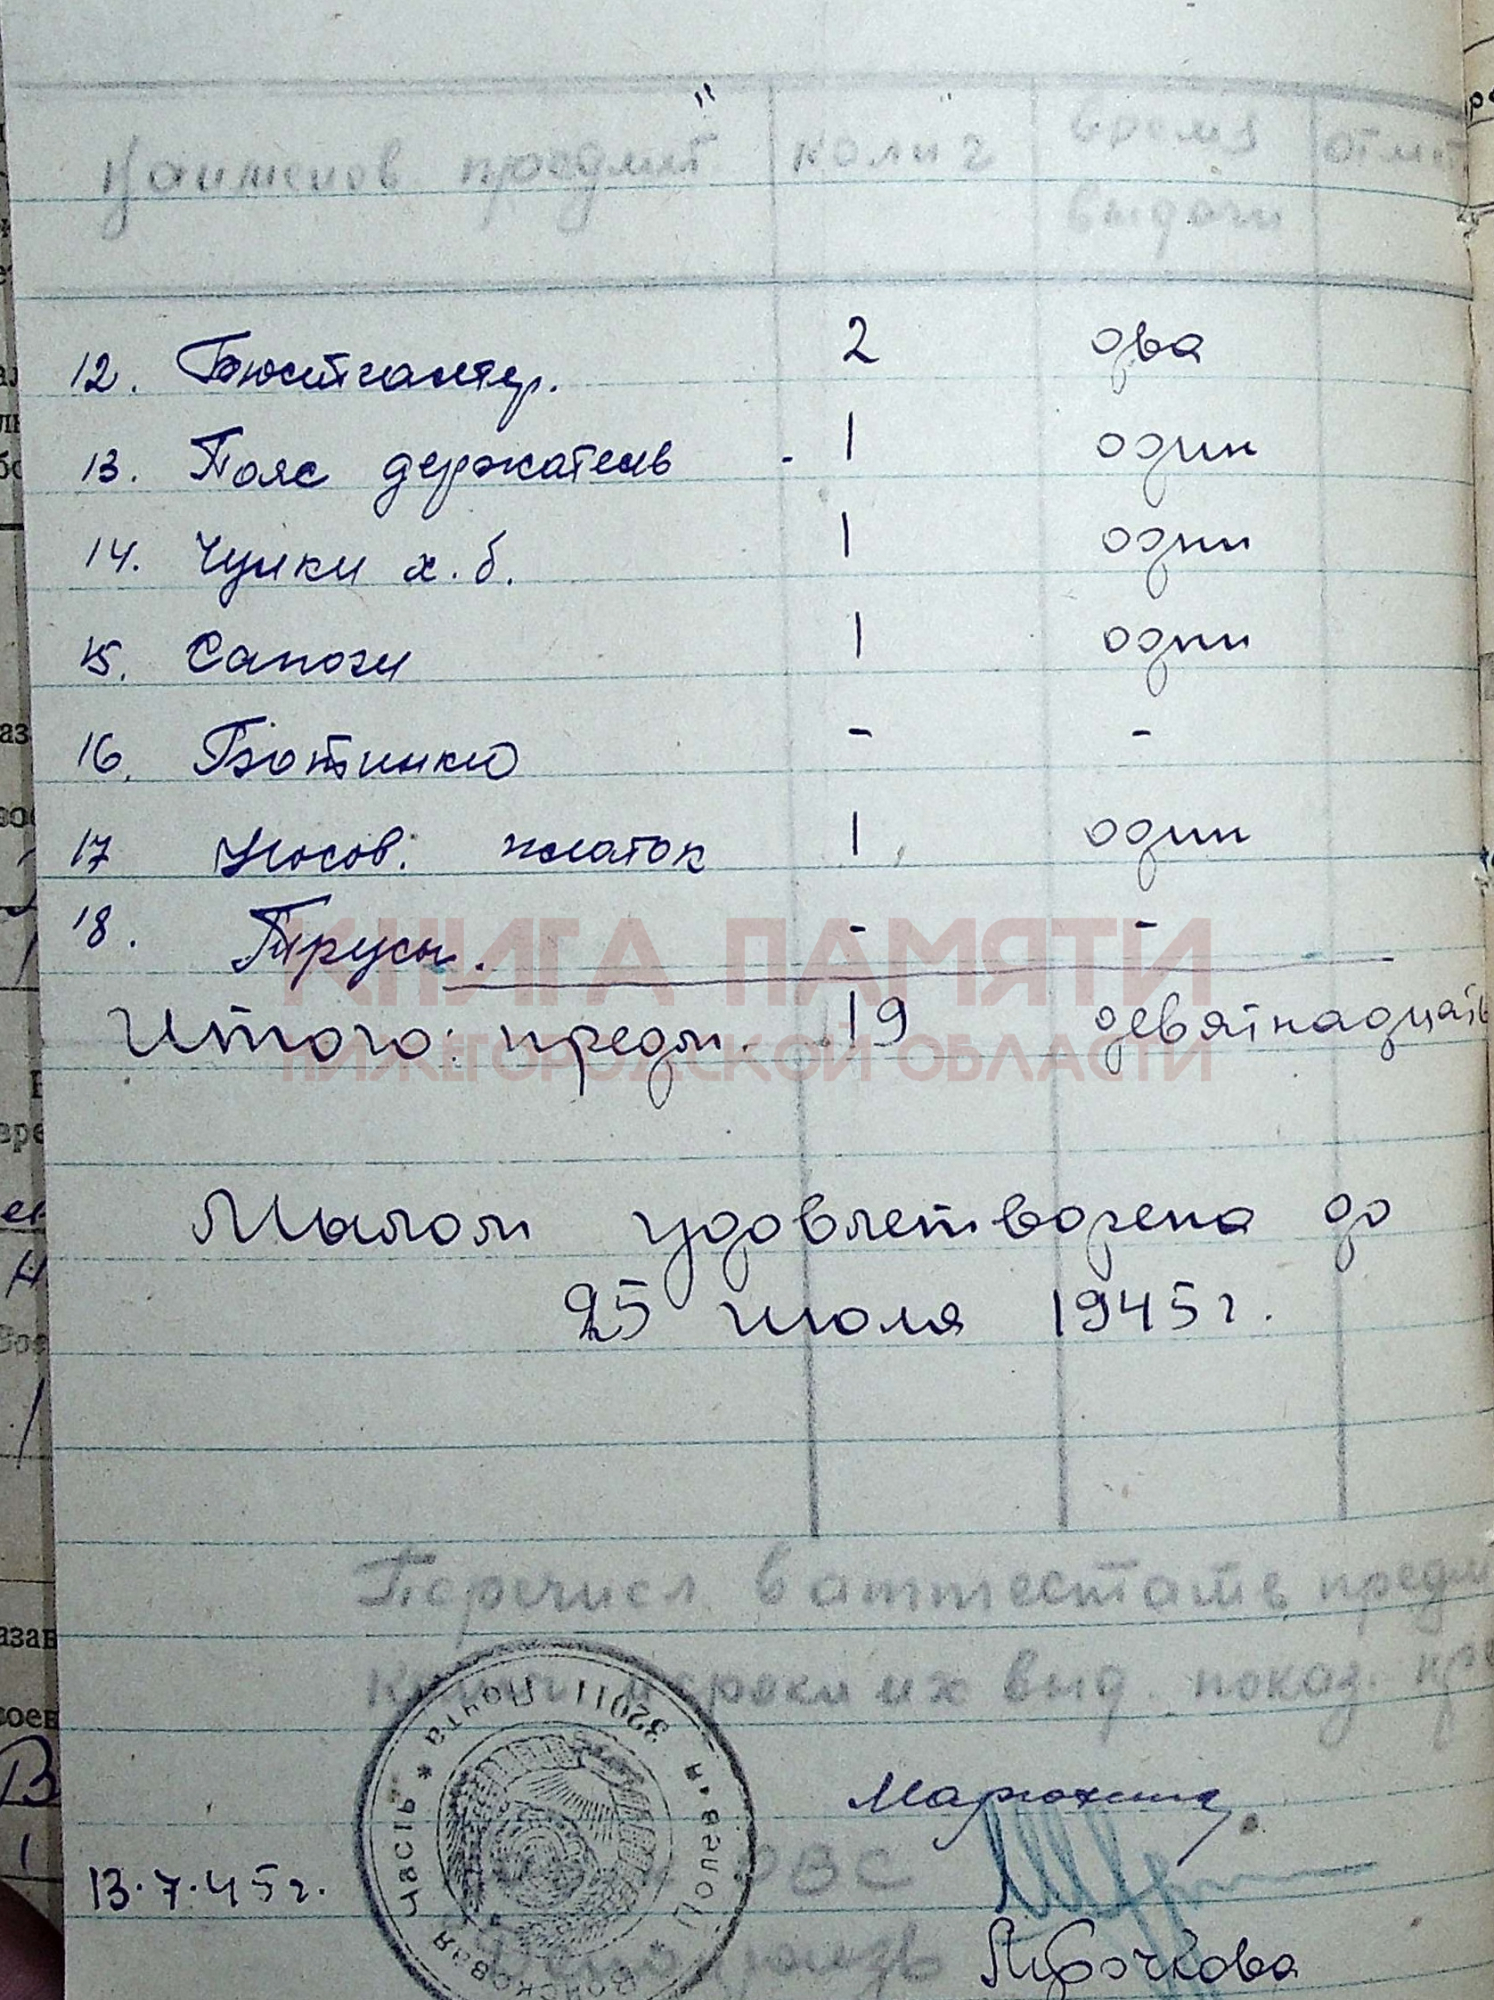 Наименов. предмет. колич время отмет
выдачи
12. Бюстгалтер. 2 два
13. Пояс держатель - 1 один
14. Чулки х.б. 1 одни
15. Сапоги 1 одни
16. Ботинки - -
17 Носов. платок 1 один
18. Трусы. - -
КНИГА ПАМЯТИ
НИЖЕГОРОДСКОЙ ОБЛАСТИ
Итого: предм. 19 девятнадцать
Мылом удовлетворена до
25 июля 1945 г.
Перечисл. в аттестате предм
и сроки их выд. показ.
Войсковая часть * Полевая Почта 32011
ОВС
13.7.45 г.